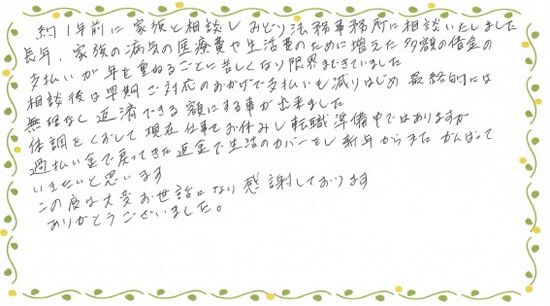 約1年前に家族と相談しみどり法務事務所に相談いたしました
長年、家族の病気の医療費や生活費のために増えた多額の借金の
支払いが年を重ねるごとに苦しくなり限界まできていました
相談後は早期ご対応のおかげで支払いも減りはじめ最終的には
無理なし返済できる額にする事が出来ました
体調をくずして現在仕事をお休みし転職準備中ではありますが
過払い金で戻ってきた返金で生活のカバーをし新年からまたがんばって
いきたいと思います
この度は大変お世話になり感謝しております
ありがとうございました。